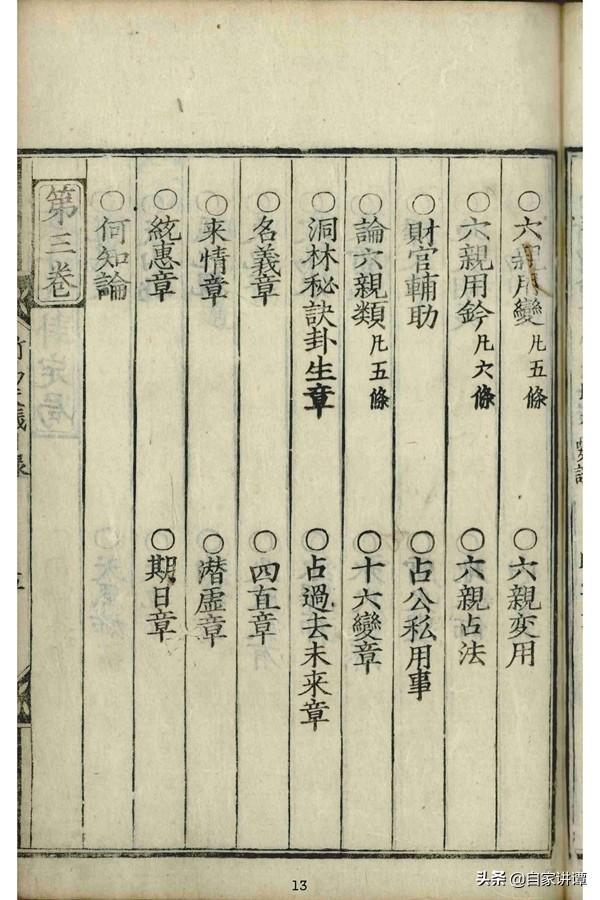 ○六親用變 凡五條 ○六親变用
○六親用鈐 凡六條 ○六親占法
○財官輔助 ○占公私用事
○論六親類 凡五條 ○十六變章
○洞林秘訣卦生章 ○占過去未来章
○名義章 ○四直章
○来情章 ○潜虛章
○統惠章 ○期日章
○何知論
第三卷
13
头条 @自家讲谭